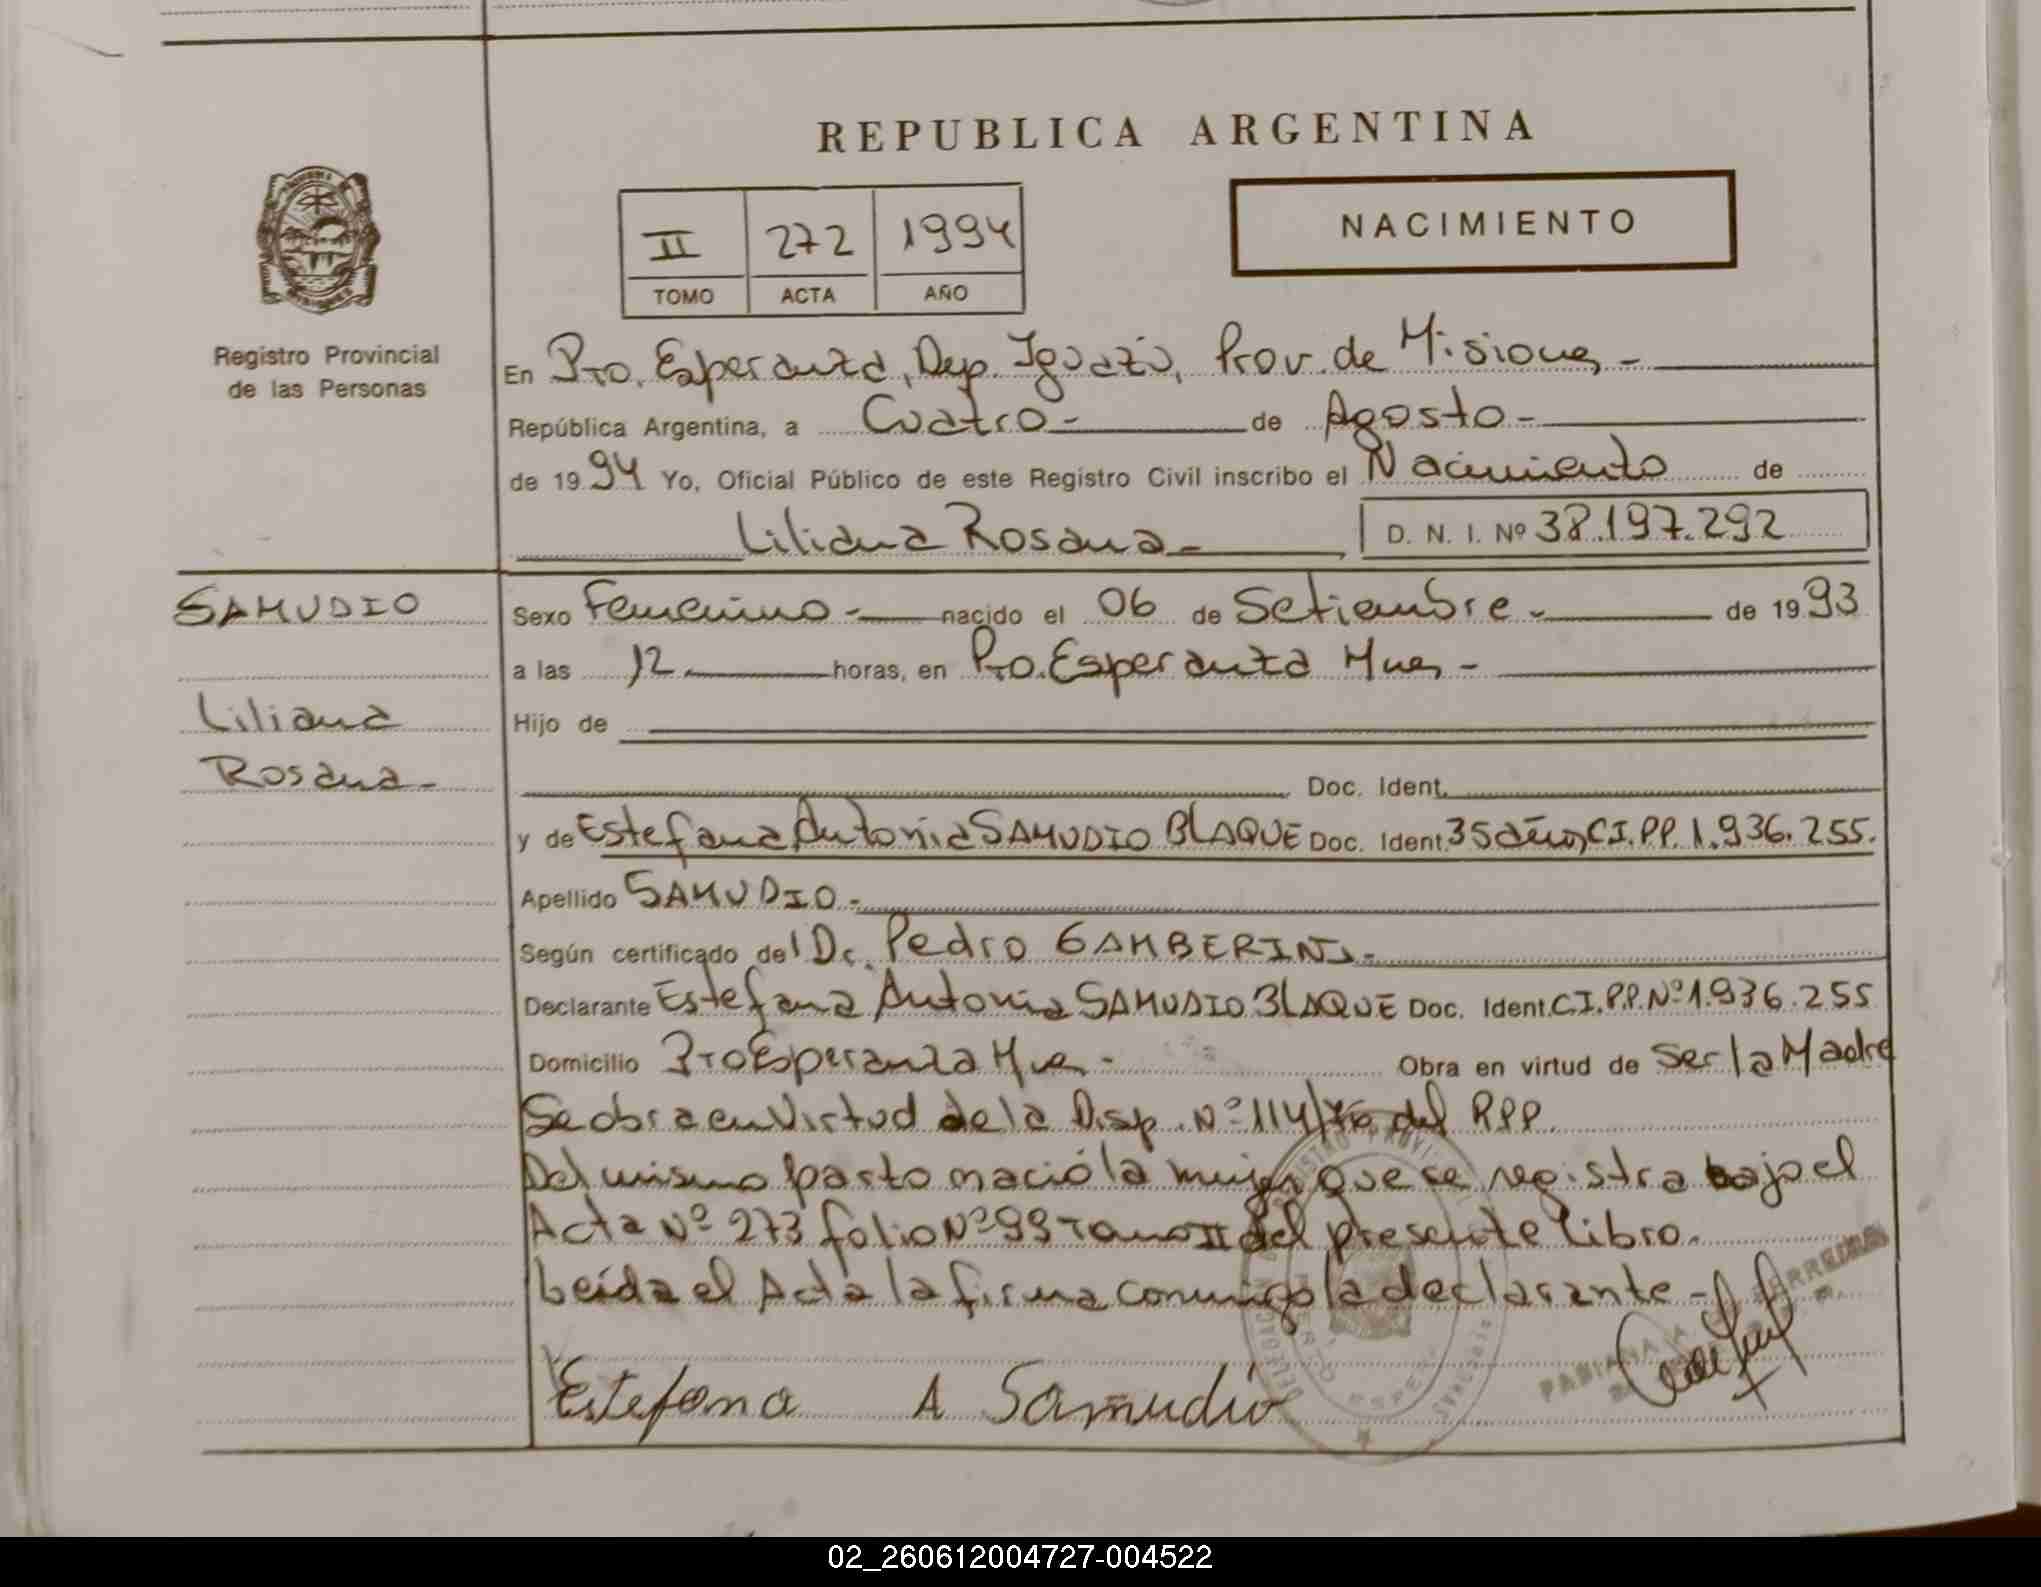 REPUBLICA ARGENTINA
NACIMIENTO
II 272 1994
TOMO ACTA AÑO
Registro Provincial
de las Personas
En Pto. Esperanza, Dep. Iguazú, Prov. de Misiones -
República Argentina, a Cuatro - de Agosto -
de 1994 Yo, Oficial Público de este Registro Civil inscribo el Nacimiento de
Liliana Rosana - D. N. I. Nº 38.197.292
SAMUDIO
Liliana
Rosana -
Sexo Femenino - nacido el 06 de Setiembre - de 1993
a las 12 horas, en Pto. Esperanza Mnes -
Hijo de
Doc. Ident.
y de Estefana Antonia SAMUDIO BLAQUE Doc. Ident. 35 años, C.I.P.P. 1.936.255.
Apellido SAMUDIO -
Según certificado del Dr. Pedro GAMBERINI -
Declarante Estefana Antonia SAMUDIO BLAQUE Doc. Ident. C.I.P.P. Nº 1.936.255
Domicilio Pto Esperanza Mnes - Obra en virtud de ser la Madre
Se obra en Virtud de la Disp. Nº 114/76 del RPP.
Del mismo parto nació la mujer que se registra bajo el
Acta Nº 273 folio Nº 99 Tomo II del presente Libro.
Leída el Acta la firma conmigo la declarante -
Estefana A Samudio
02_260612004727-004522